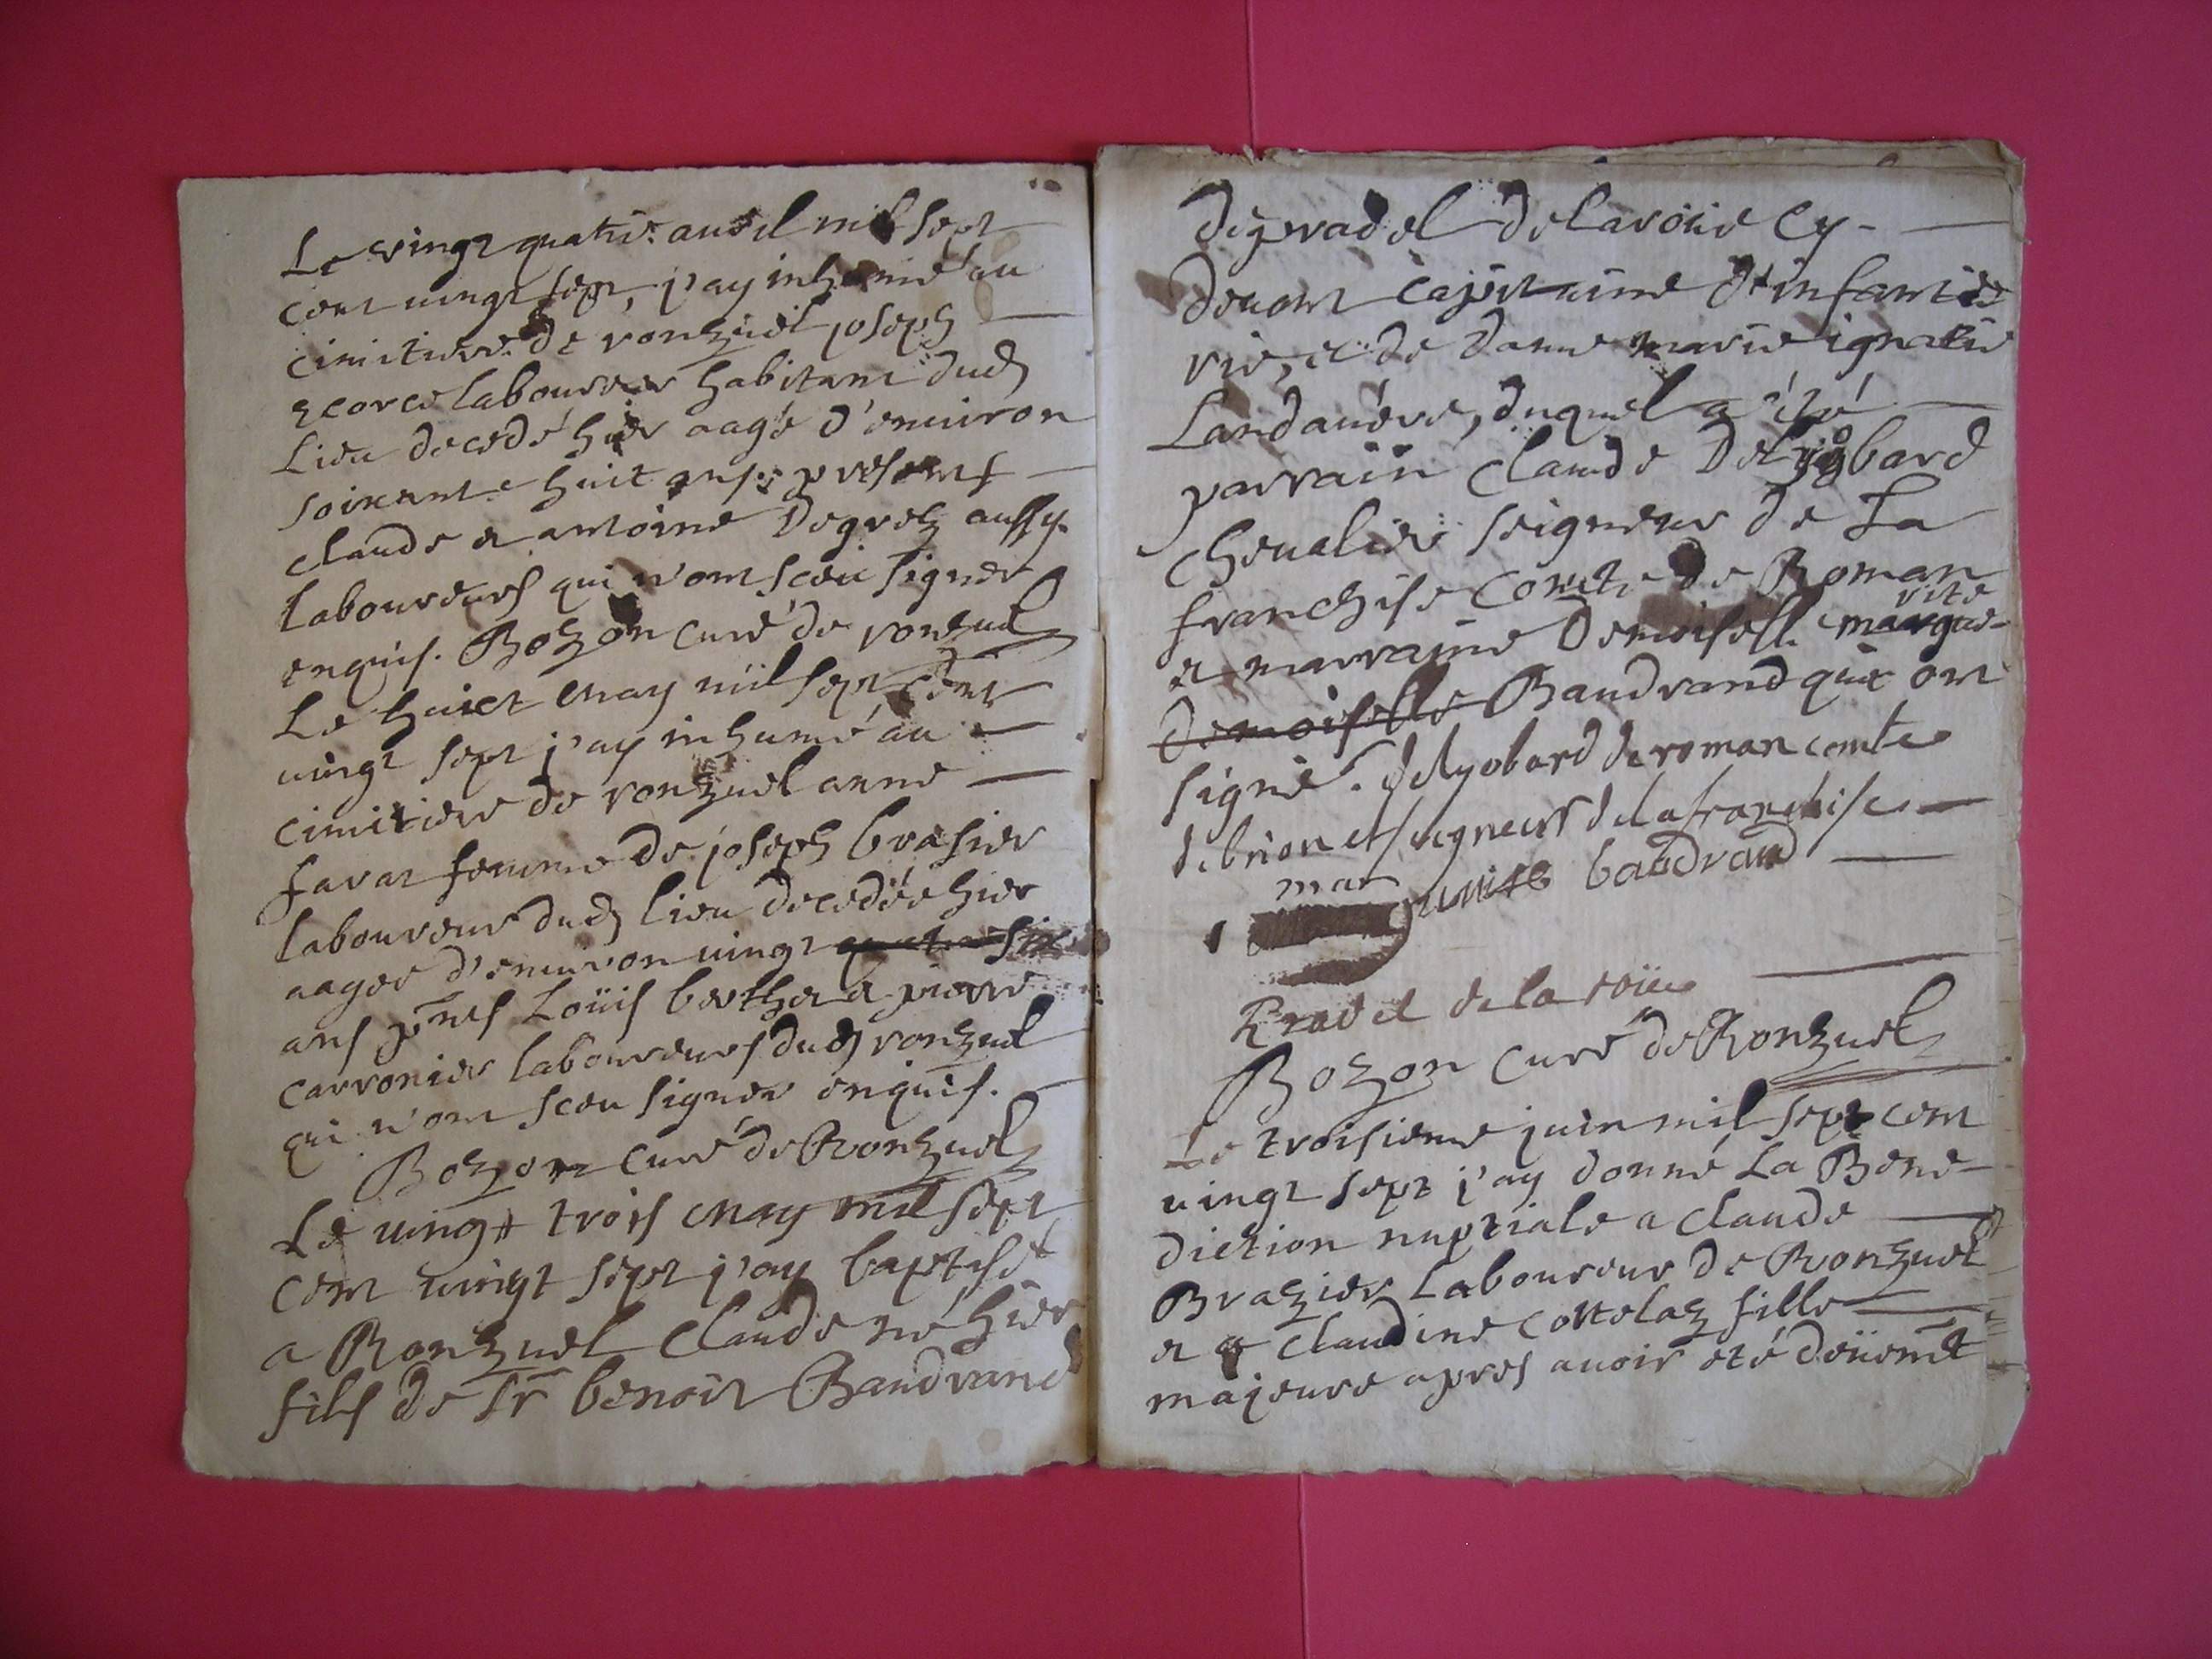 Le vingt quatre. auril mil sept
cent uingt sept, j'ay inhumé au
cimitiere de ronzuel joseph
laboureur habitant dud
lieu decedé hier aagé d'enuiron
soixante huit ans presents
claude et antoine Degrelz aussy
laboureurs qui n'ont sceu signer
enquis. Bozon curé de ronzuel
Le huict may mil sept cent
uingt sept j'ay inhumé au
cimitiere de ronzuel anne
favat femme de joseph brasier
laboureur dud lieu decedée hier
aagee d'enuiron uingt quatre six
ans pnts Loüis berthet et pierre
carronier laboureurs dud ronzuel
qui n'ont sceu signer enquis.
Bozon curé de Ronzuel
Le uingt trois may mil sept
cent uingt sept j'ay baptisé
a Ronzuel Claude né hier
fils de sr benoit Baudrand
depradel delaroüe Cy-
deuant capitaine d'infante
rie, et de dame marie ignatie
Landauére, duquel a été
parrain Claude Delyobard
cheualier seigneur de La
franchise Comte de Roman
et marraine Demoiselle margue-
rite
demoiselle Baudrand qui ont
signé. delyobard de roman comte
de brion et seigneur de la franchise
mar
guerite baudrand
Pradel de la roüe
Bozon curé de Ronzuel
Le troisieme juin mil sept cent
uingt sept j'ay donné La Bene-
diction nuptiale a claude
Brazier Laboureur de Ronzuel
et a claudine cottelaz fille
majeure apres auoir eté deüemt